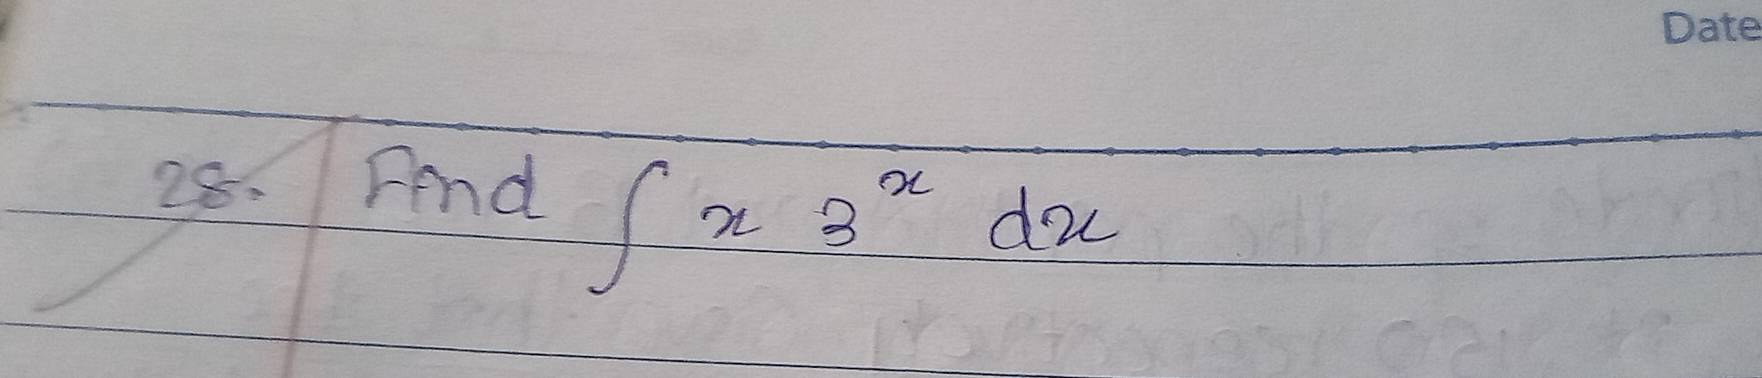 Date
28. Find ∫ x 3^x dx